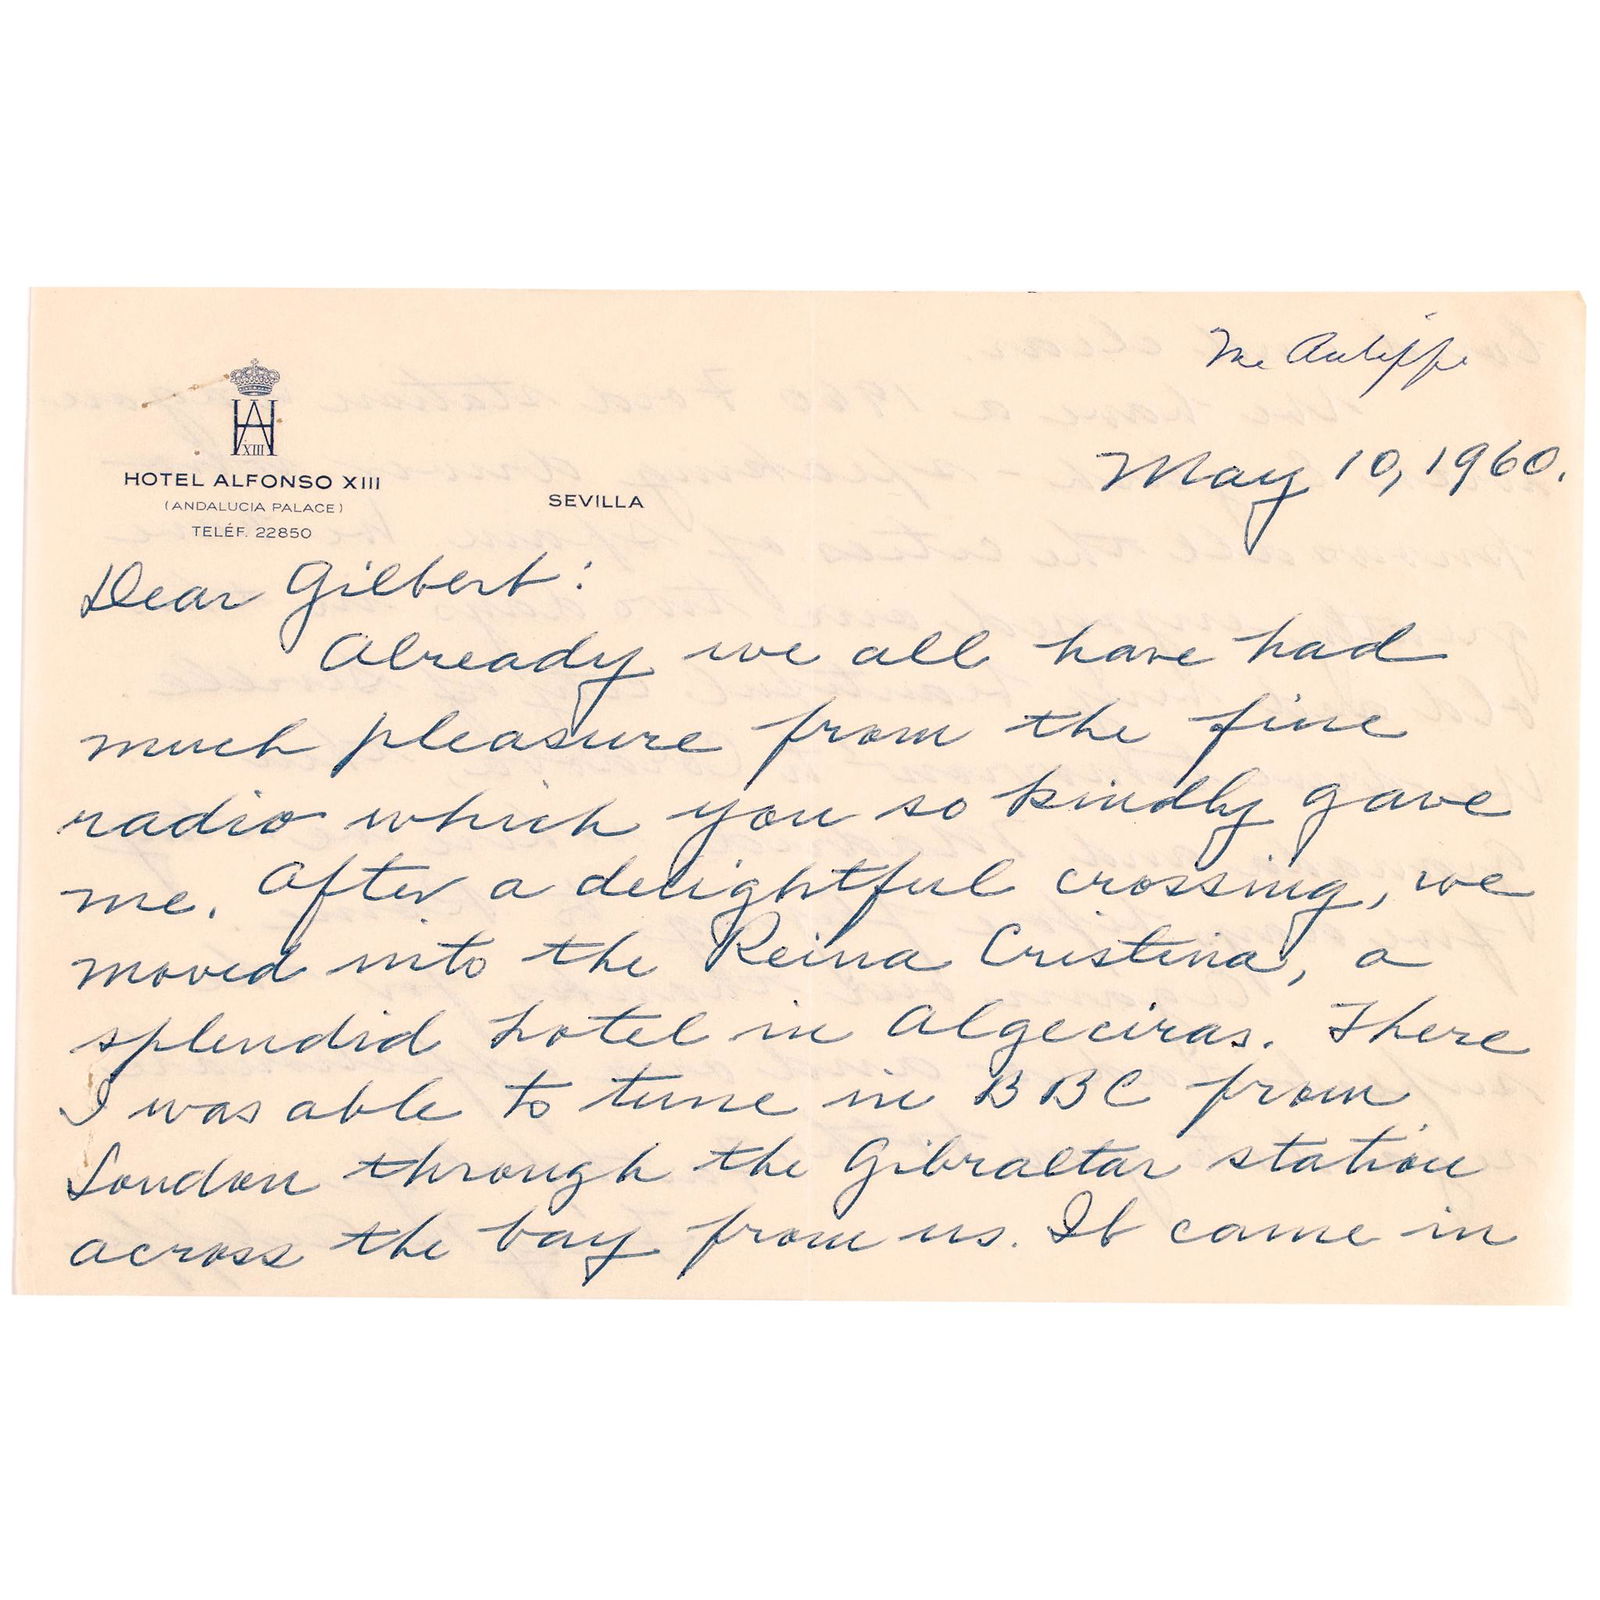 Mc Auliffe
May 10, 1960.
AH
XIII
HOTEL ALFONSO XIII
(ANDALUCIA PALACE)
TELÉF. 22850
SEVILLA
Dear Gilbert:
Already we all have had
much pleasure from the fine
radio which you so kindly gave
me. After a delightful crossing, we
moved into the Reina Cristina, a
splendid hotel in Algeciras. There
I was able to tune in BBC from
London through the Gibraltar station
across the bay from us. It came in